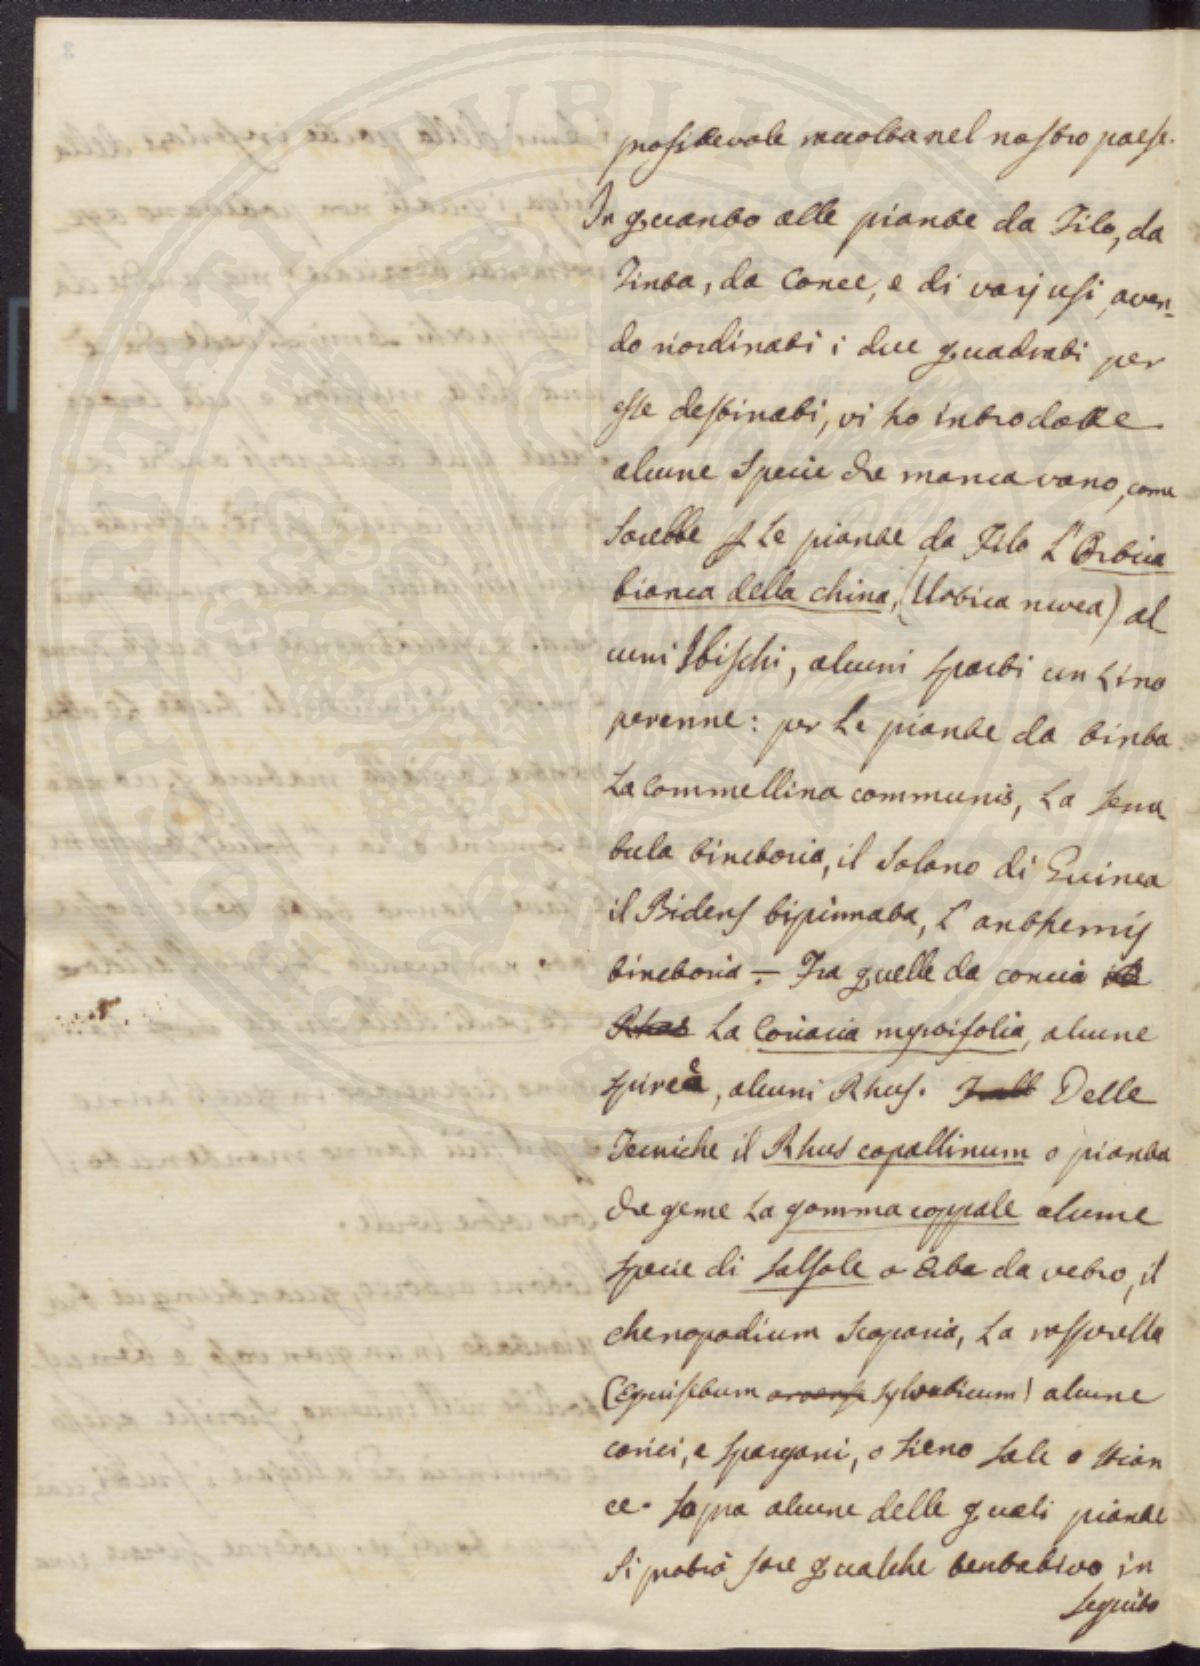 profittevole raccolta nel nostro paese.
In quanto alle piante da Tilo, da
Tinta, da Conce, e di varj usi, aven-
do riordinati i due quadrati per
esse destinati, vi ho introdotte
alcune specie che mancavano, come
sarebbe p le piante da Filo l'Ortica
bianca della china, (Urtica nivea) al
cuni Ibischi, alcuni sparti un Lino
perenne: per le piante da tinta
La Commellina communis, La serra
tula tinctoria, il Solano di Guinea
il Bidens bipinnata, L'anthemis
tinctoria – Fra quelle da concia
Rhus La Coriaria myrtifolia, alcune
spiree, alcuni Rhus. Delle
Tecniche il Rhus copallinum o pianta
che geme La gomma coppale alcune
specie di salsole o Erba da vetro, il
chenopodium Scoparia, La rasperella
(Equisetum arvense sylvaticum) alcune
carici, e spargani, o fieno sale o scian
ce. Sopra alcune delle quali piante
Si potrà fare qualche tentativo in
seguito